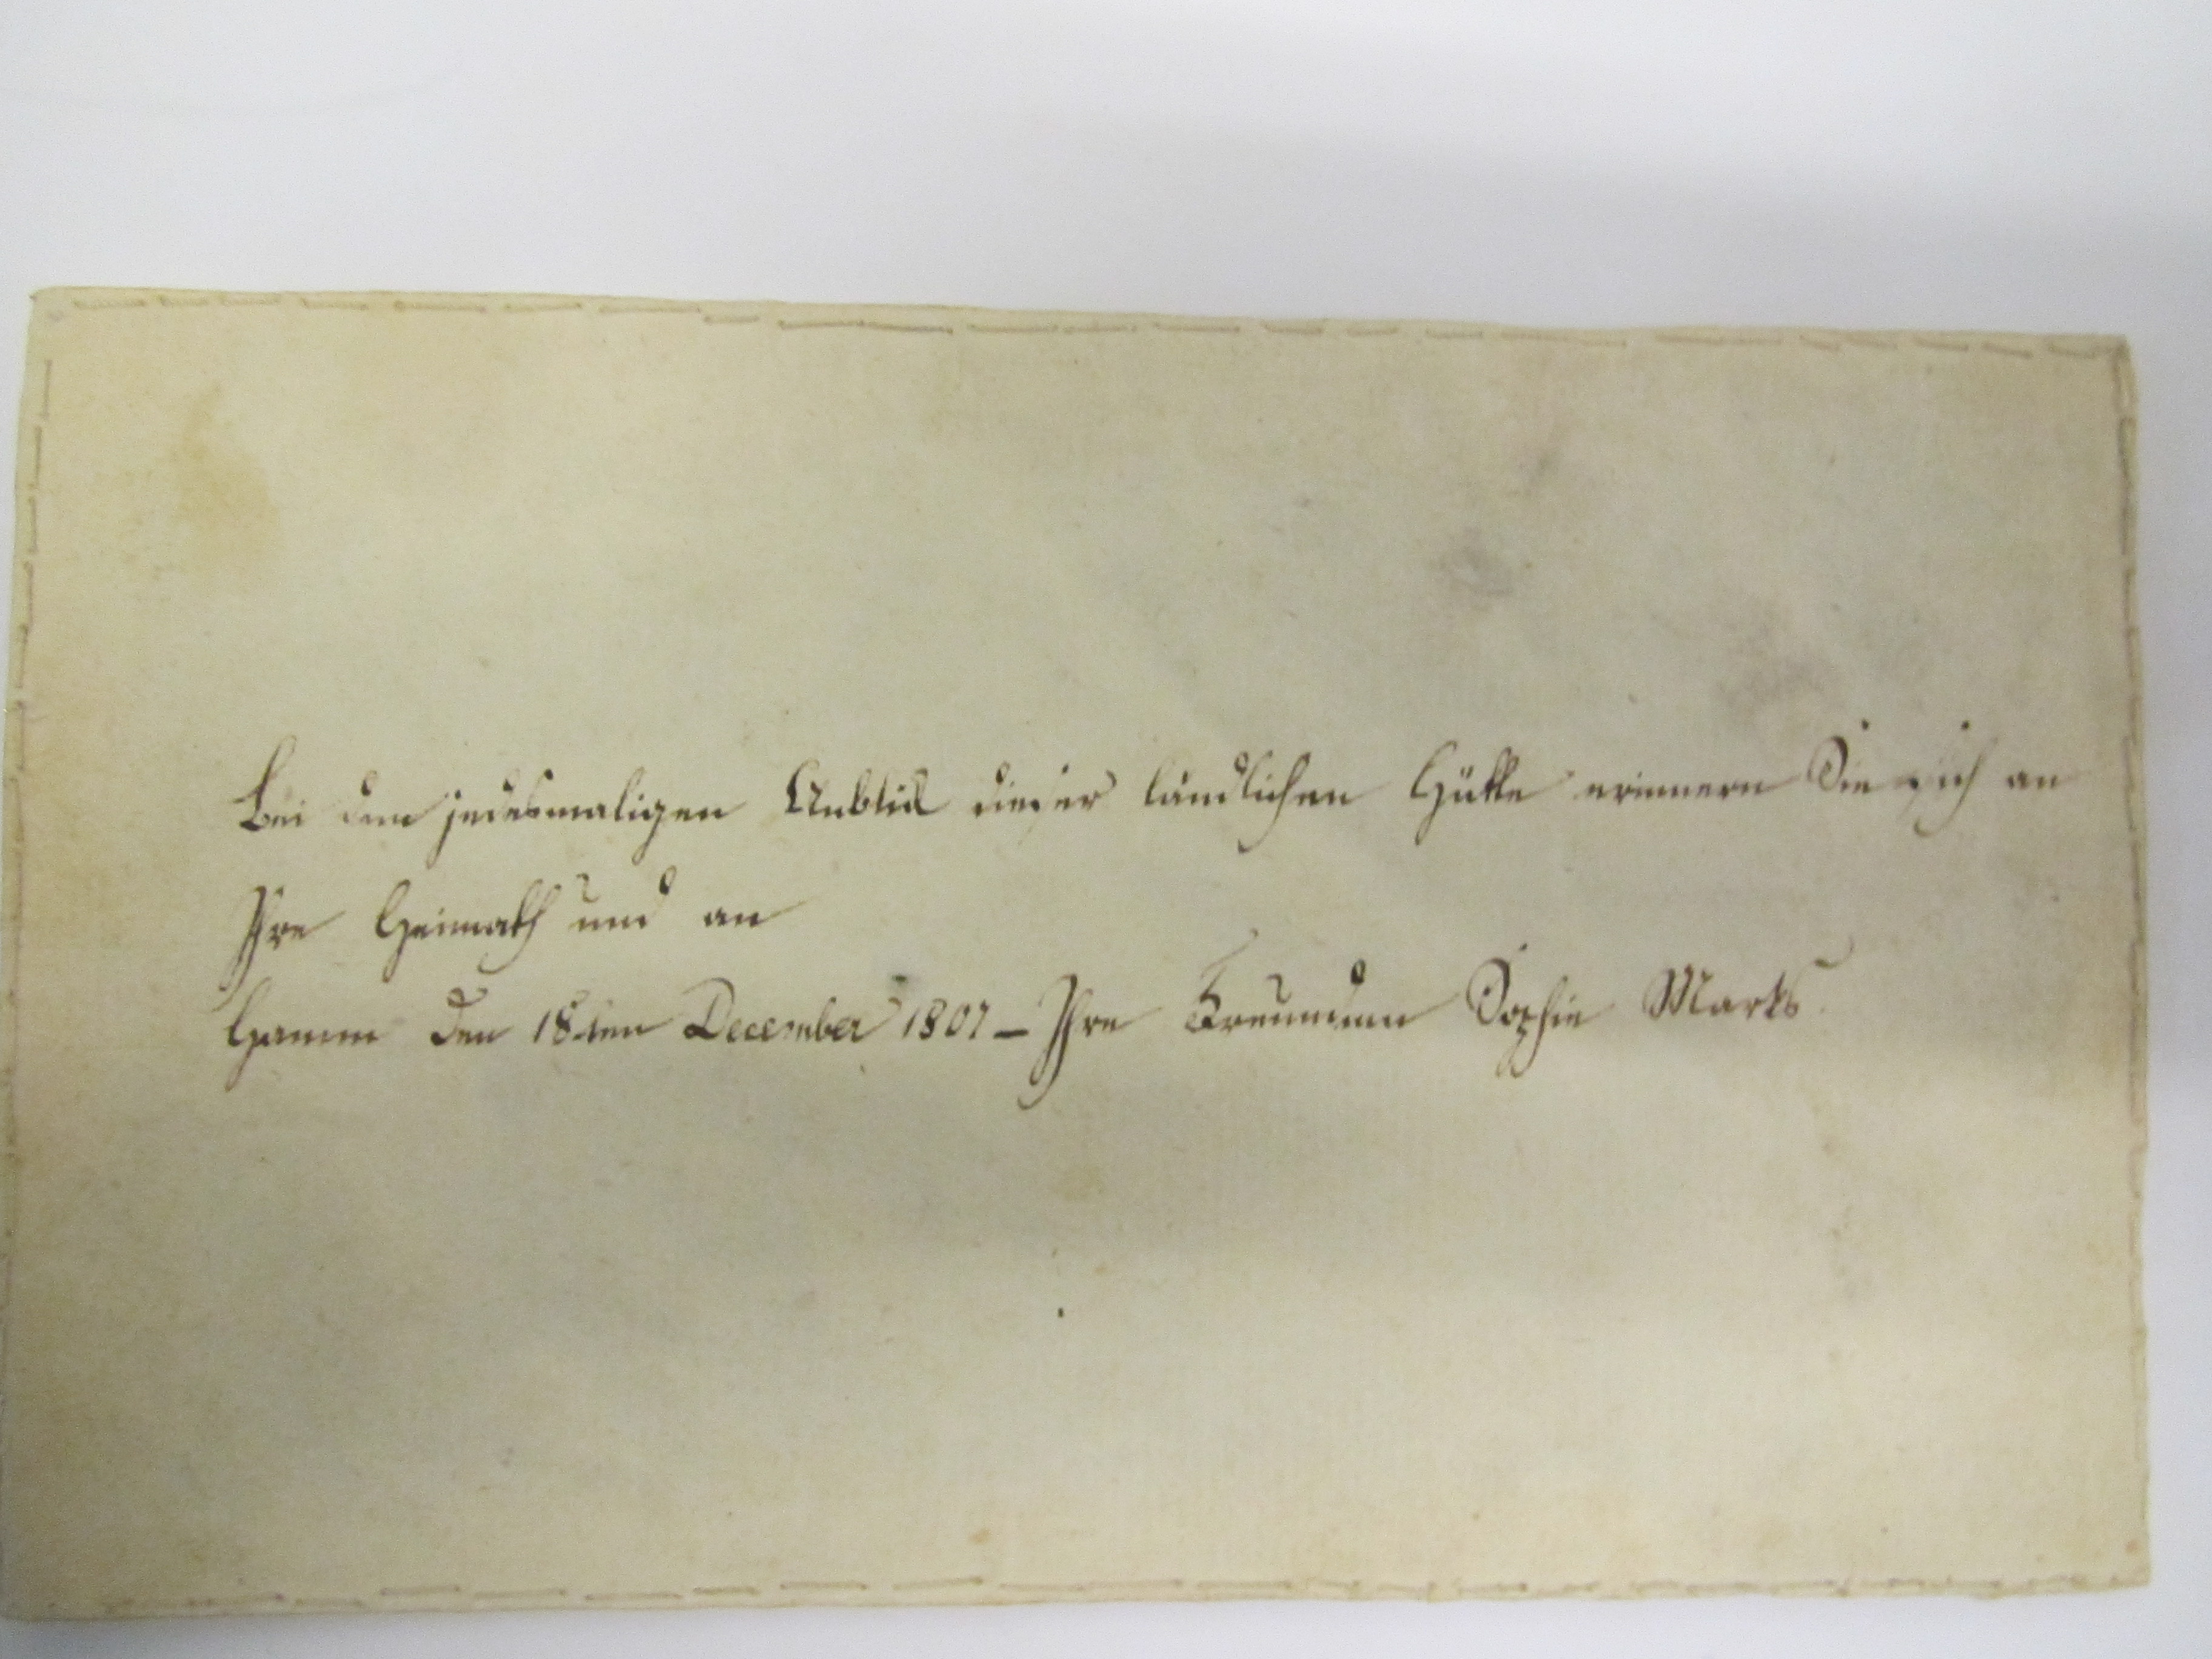 Bei dem jedesmaligen Anblick dieser ländlichen Hütte erinnern Sie sich an
Ihre Heimath und an
Hamm den 18ten December 1807 – Ihre Freundinn Sophie Marks.